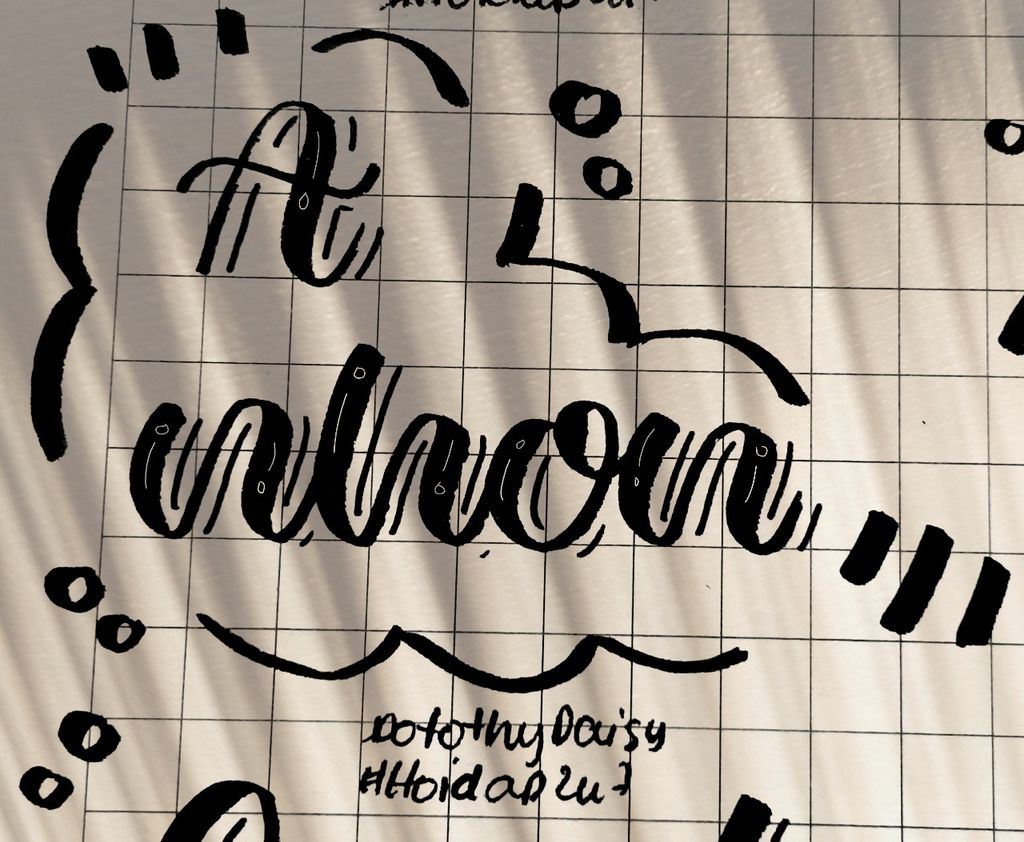 A
nhon
DorothyDaisy
#Hoidap247